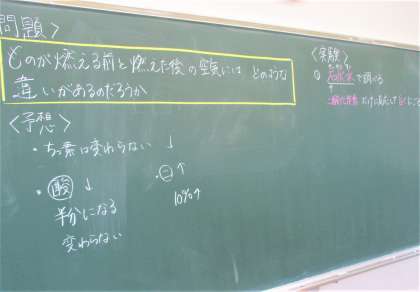 問題〉
ものが燃える前と燃えた後の空気には どのような
違いがあるのだろうか
〈予想〉
・ちっ素は変わらない ↓
・酸 ↓
半分になる
変わらない
・二 ↑
10%↑
〈実験〉
① 石灰水で調べる
二酸化炭素